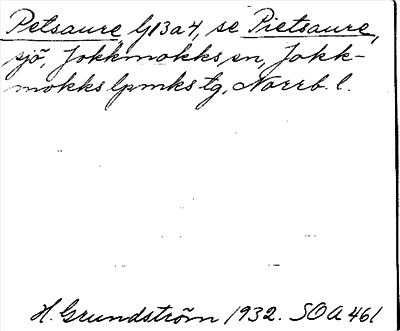 Petsaure bl13a4, se Pietsaure,
sjö, Jokkmokks sn, Jokk-
mokks lpmks tg, Norrb. l.
H. Grundström 1932. SOA 461